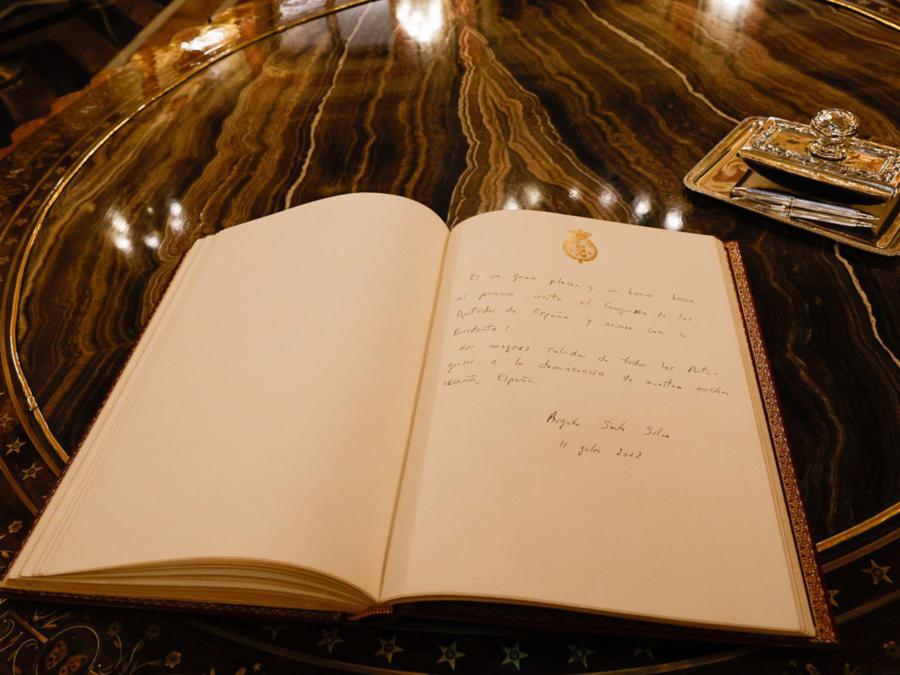 Es un gran placer y un honor hacer
la primera visita al Congreso de los
Diputados de España y reunir con su
Presidenta!
Los mejores saludos de todos los Portu-
gueses a la democracia de nuestra nuestra
vecina, España.
Augusto Santos Silva
11 julio 2022